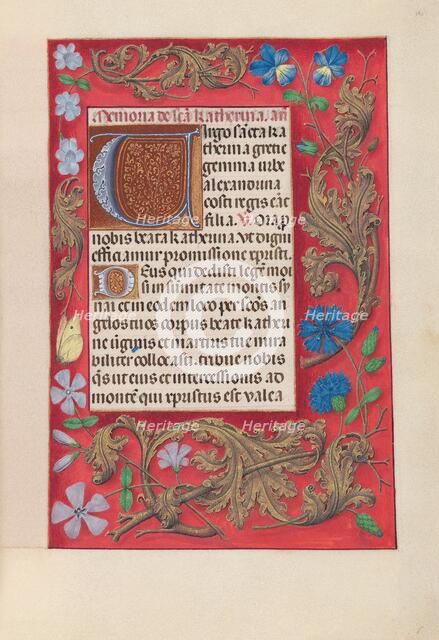 Memoria de scā Katherina. añ
Uirgo sācta ka
therina grecie
gemma urbe
alexandrina
costi regis erat
filia. V. Ora p
nobis beata katherina. Vt digni
efficiamur promissione xpristi.
Deus qui dedisti legem moi
si in summitate montis sy
nai et in eodem loco per scōs an
gelos tuos corpus beate katheri
ne v̄ginis et martiris tue mira
biliter collocasti. tribue nobis
q̄s ut eius et intercessionis ad
montē qui xpristus est valea
Heritage
Heritage
Heritage
Heritage
Heritage
Heritage
Heritage